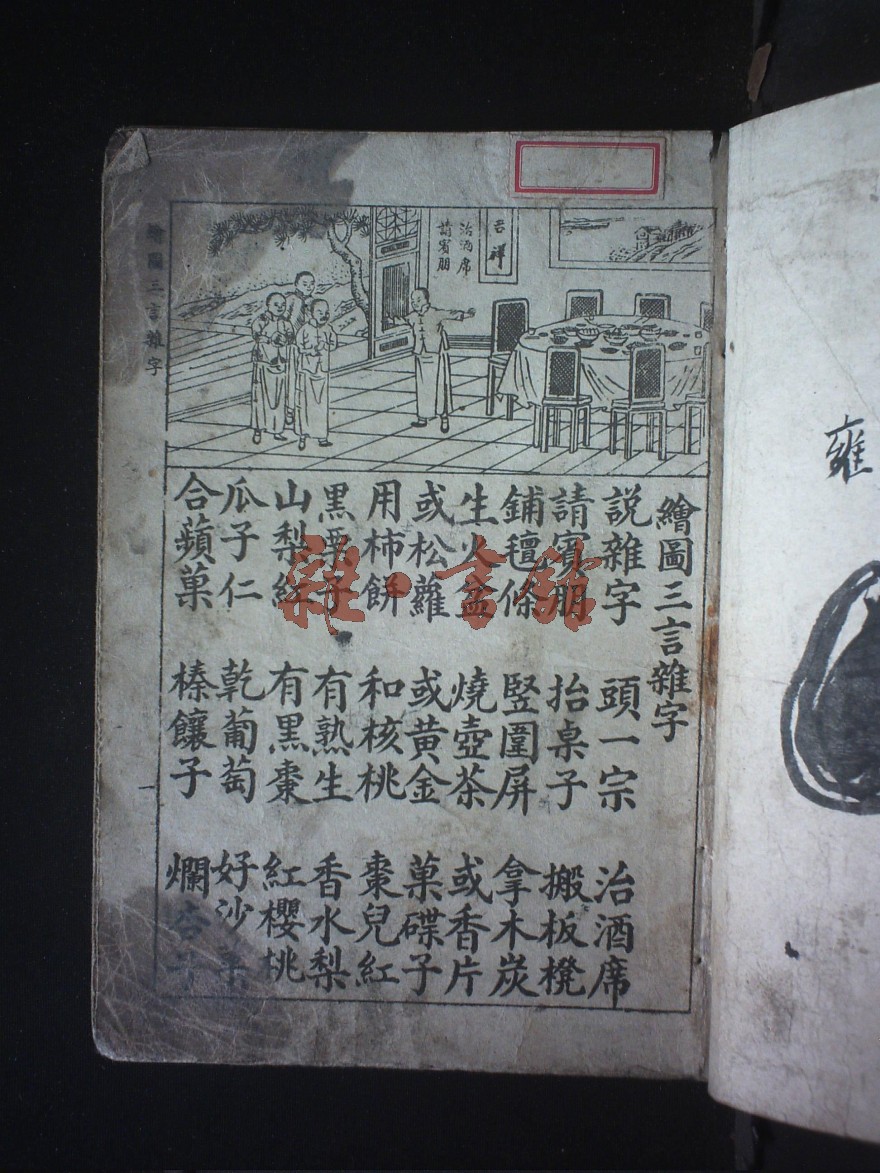 繪圖三言雜字
吉祥
治酒席
請賓朋
繪圖三言雜字
說雜字 頭一宗 治酒席
請賓朋 抬桌子 搬板櫈
鋪氊條 竪圍屏 拿木炭
生火盆 燒壺茶 或香片
或松蘿 或黄金 菓碟子
用柿餅 和核桃 棗兒紅
黑棗子 有熟生 香水梨
山梨紅 有黑棗 紅櫻桃
瓜子仁 乾葡萄 好沙
合蘋菓 榛饟子 爛杏子
雜·言館
雍